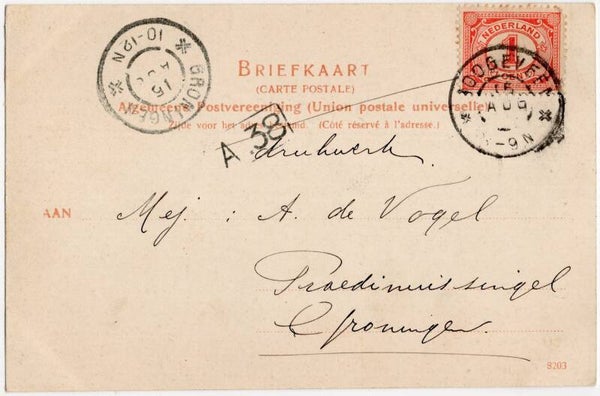 NEDERLAND
1
HOOGEVEEN
15
AUG
-9N
GRONINGEN
15
10-12N
BRIEFKAART
(CARTE POSTALE)
Algemeene Postvereeniging (Union postale universelle)
Zijde voor het adres bestemd. (Côté réservé à l'adresse.)
A 38
drukwerk
AAN Mej: A. de Vogel
Praedinussingel
Groningen
8203